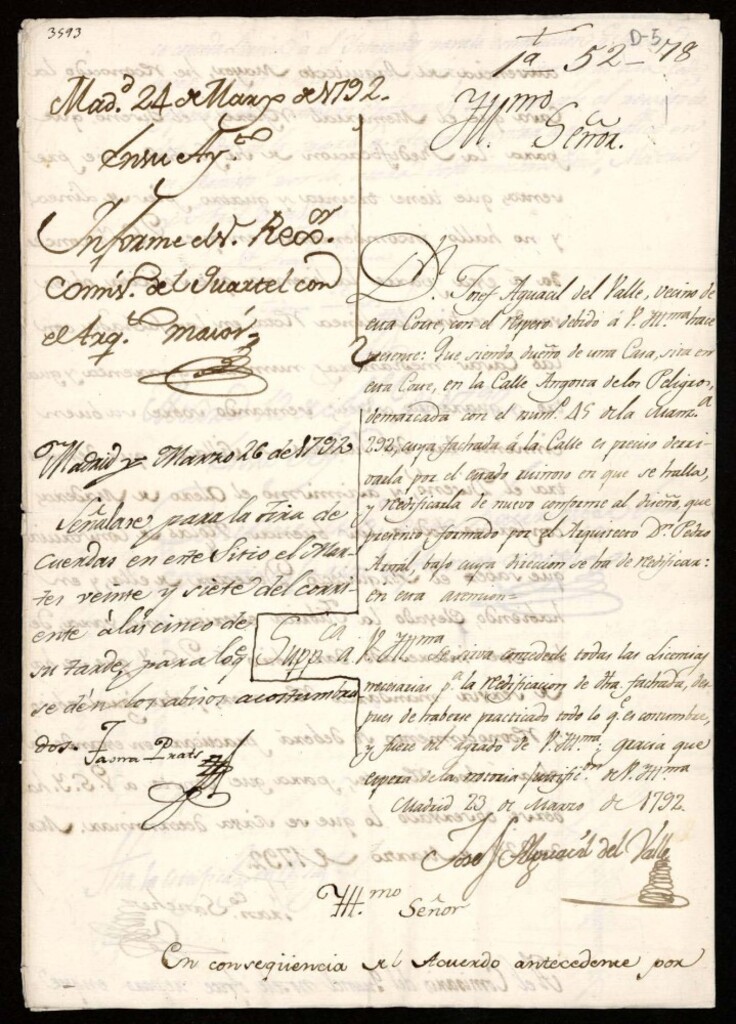 3593
D-5
1ª 52-78
Madd. 24 de Marzo de 1792.
En su Aytto
Informe el Sr. Rexor.
Comisº. del Quartel con
el Arqto. maior
Madrid y Marzo 26 de 1792
Señalase para la tira de
cuerdas en este Sitio el Mar-
tes veinte y siete del corri-
ente á las cinco de
su tarde, para lo q.
se dén los abisos acostumbra
dos.
Prats
Illmo.
Señor.
Dn. Josef Alguacil del Valle, vecino de
esta Corte, con el respeto debido á V. Illma hace
presente: Que siendo dueño de una Casa, sita en
esta Corte, en la Calle Angosta de los Peligros,
demarcada con el numº. 45 de la Manzª
292, cuya fachada á la Calle es preciso derri-
varla por el estado ruinoso en que se halla,
y redificarla de nuevo conforme al diseño, que
presento formado por el Arquitecto Dn. Pedro
Arnal, bajo cuya direccion se ha de redificar:
en esta atencion
Suppca. á V. Illma se sirva concederle todas las Licencias
necesarias pª. la redificacion de dha. fachada, des-
pues de haberse practicado todo lo q. es costumbre,
y fuere del agrado de V. Illma; gracia que
espera de la notoria justificn. de V. Illma
Madrid 23 de Marzo de 1792.
Josef Alguacil del Valle
Illmo.
Señor
En conseqüencia del Acuerdo antecedente por